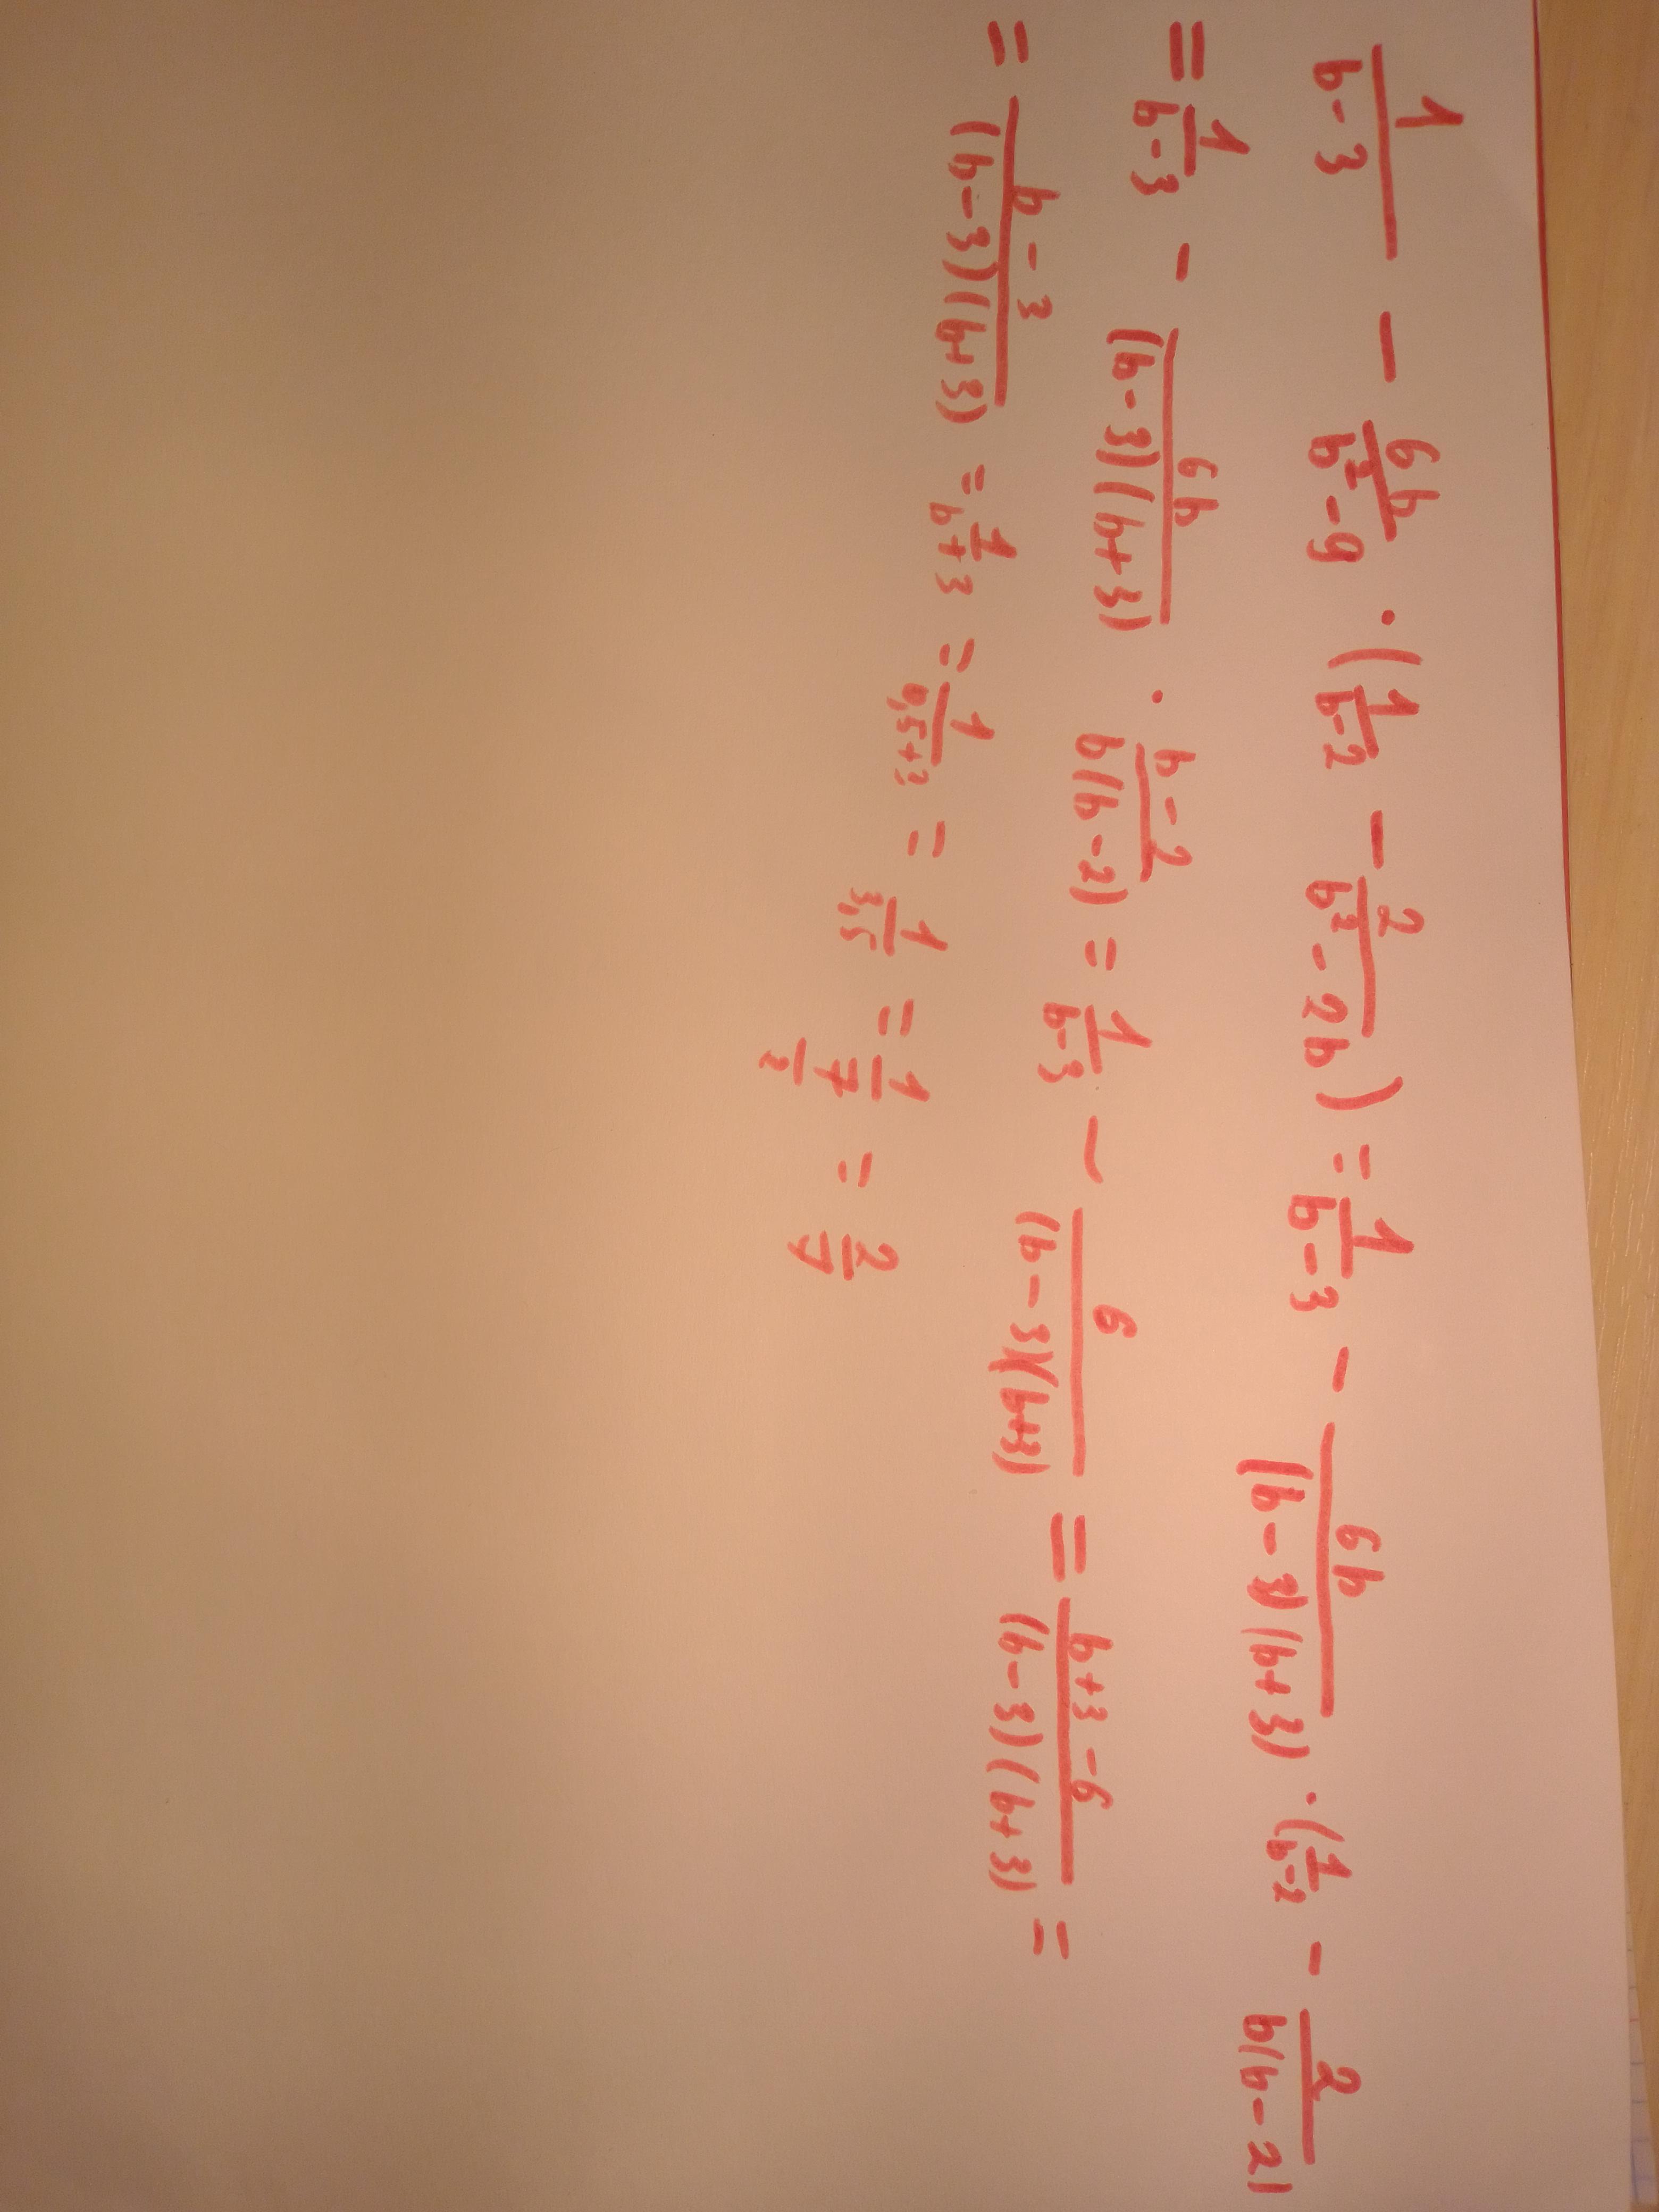 1/(b-3) - 6b/(b²-9) · (1/(b-2) - 2/(b²-2b)) = 1/(b-3) - 6b/((b-3)(b+3)) · (1/(b-2) - 2/(b(b-2)
= 1/(b-3) - 6b/((b-3)(b+3)) · (b-2)/(b(b-2)) = 1/(b-3) - 6/((b-3)(b+3)) = (b+3-6)/((b-3)(b+3)) =
= (b-3)/((b-3)(b+3)) = 1/(b+3) = 1/(0,5+3) = 1/3,5 = 1/(7/2) = 2/7